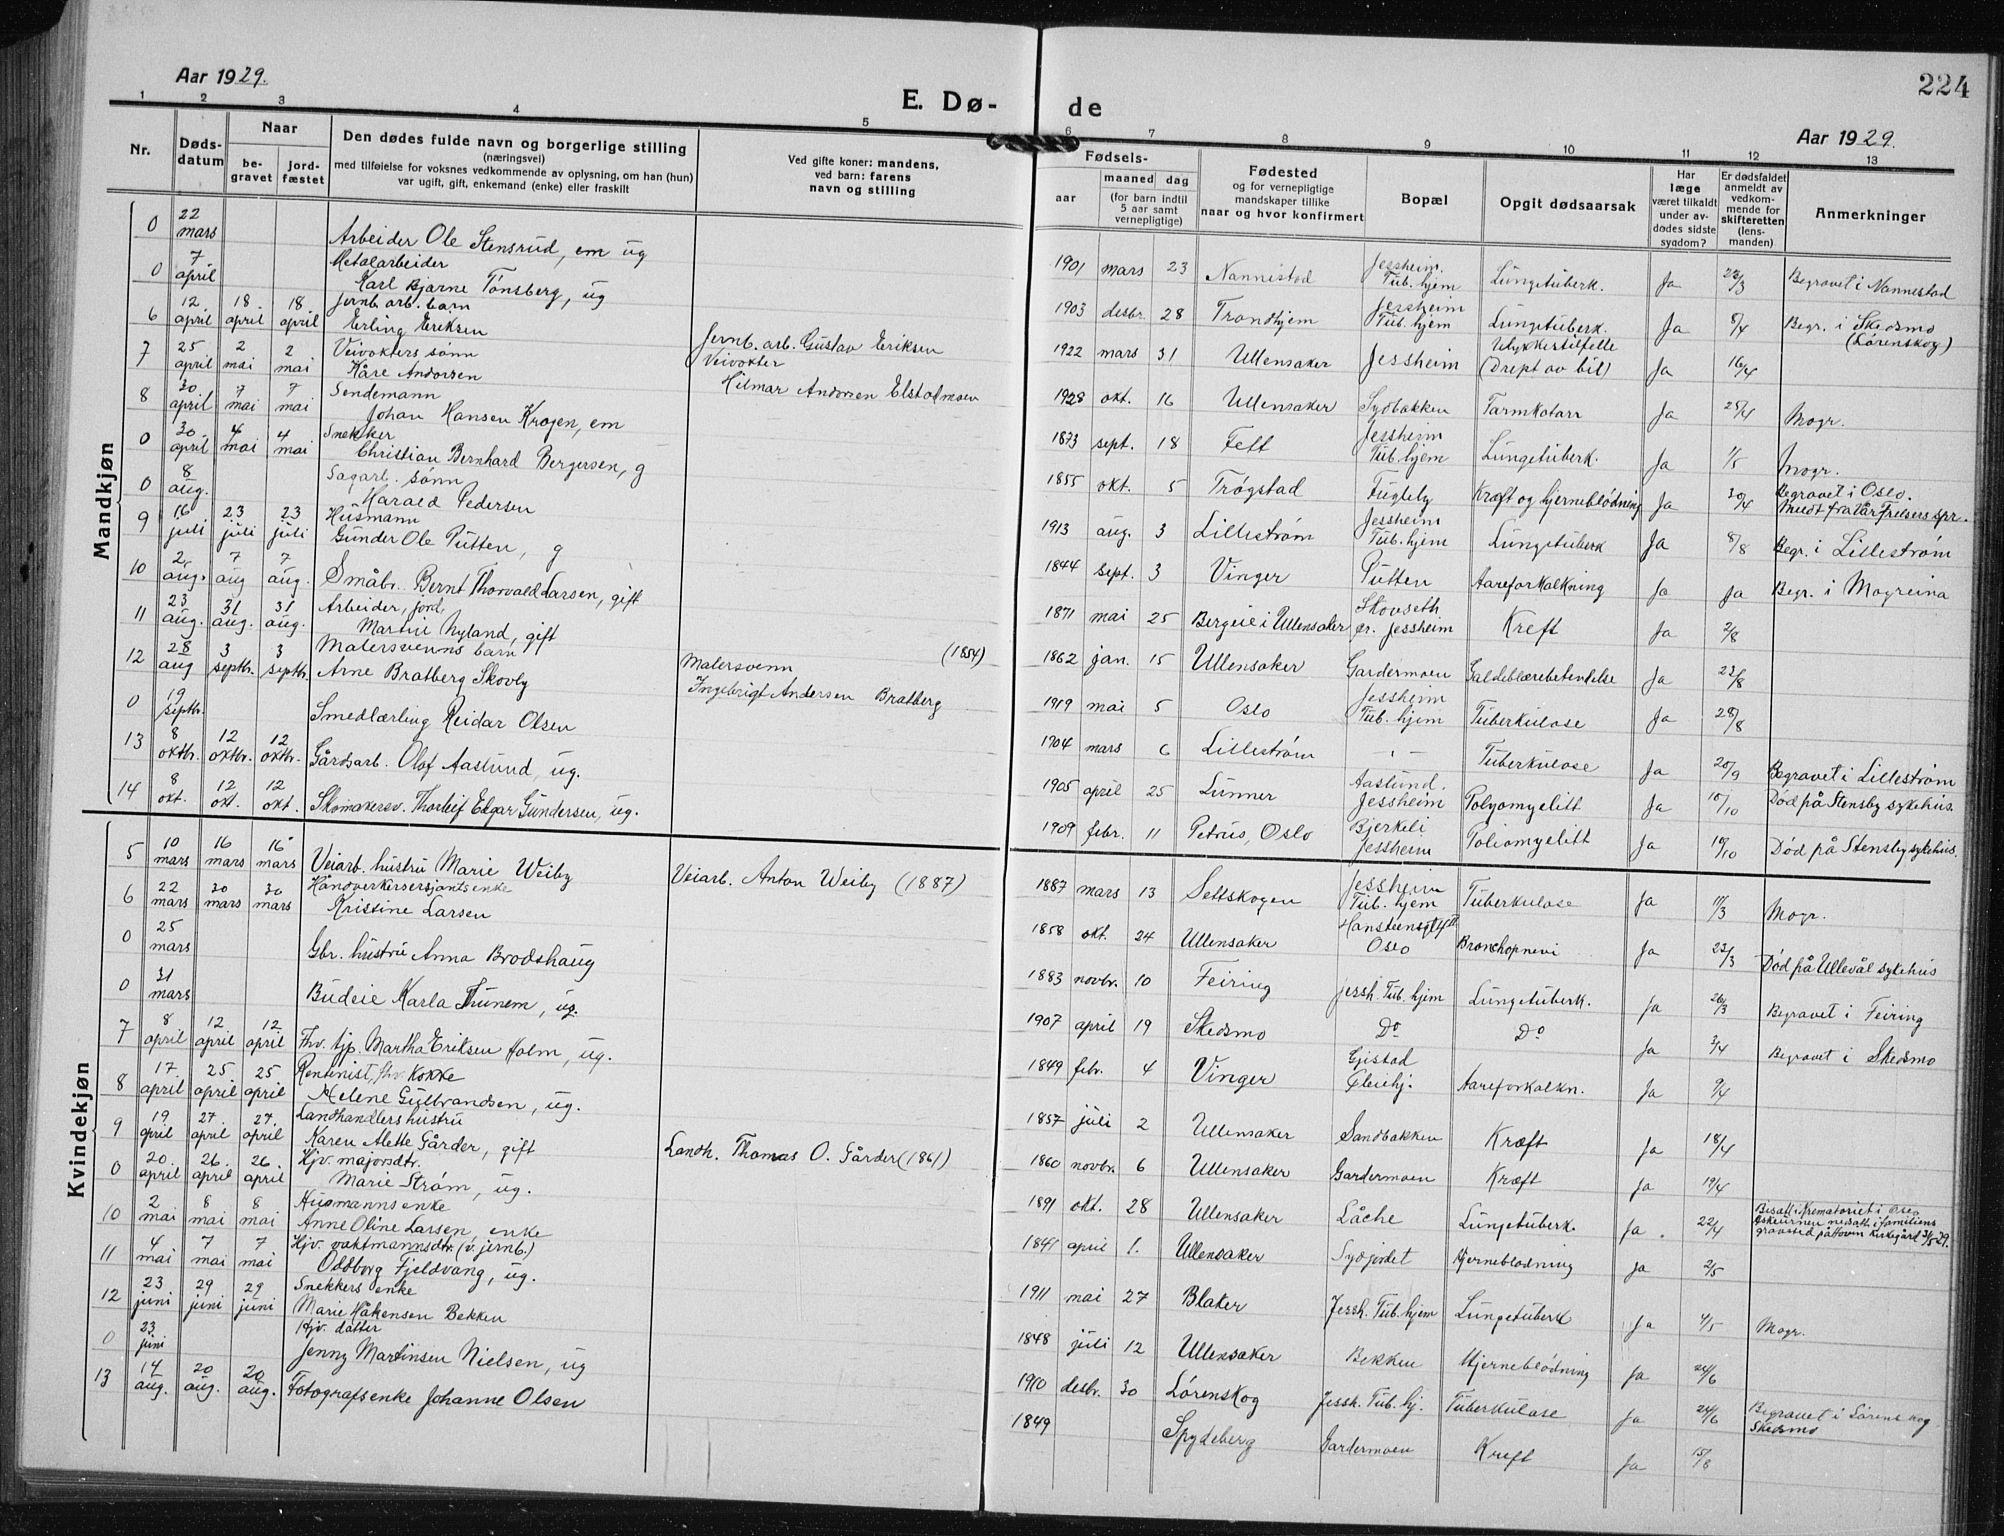 Aar 1929.
E. Dø-
de
224
Aar 1929.
1 2 3 4 5 6 7 8 9 10 11 12 13
Nr.
Døds-
datum
Naar
be-
gravet
jord-
fæstet
Den dødes fulde navn og borgerlige stilling
(næringsvei)
med tilføielse for voksnes vedkommende av oplysning, om han (hun)
var ugift, gift, enkemand (enke) eller fraskilt
Ved gifte koner: mandens,
ved barn: farens
navn og stilling
Fødsels-
aar
maaned dag
(for barn indtil
5 aar samt
vernepligtige)
Fødested
og for vernepligtige
mandskaper tillike
naar og hvor konfirmert
Bopæl
Opgit dødsaarsak
Har
læge
været tilkaldt
under av-
dødes sidste
sygdom?
Er dødsfaldet
anmeldt av
vedkom-
mende for
skifteretten
(lens-
manden)
Anmerkninger
Mandkjøn
0 22 mars Arbeider Ole Stensrud, em ug 1901 mars 23 Nannistad Jessheim Tub. hjem Lungetuberk. Ja 22/3 Begravet i Nannestad
0 7 april Metalarbeider
Karl Bjarne Tønsberg, ug 1903 desbr. 28 Trondhjem Jessheim Tub. hjem Lungetuberk. Ja 8/4 Begr. i Skedsmo (Lørenskog)
6 12 april 18 april 18 april Jernb. arb. barn
Erling Eriksen Jernb. arb. Gustav Eriksen 1922 mars 31 Ullensaker Jessheim Ulykkestilfelle (Drept av bil) Ja 16/4
7 25 april 2 mai 2 mai Veivokters sønn
Kåre Andorsen Veivokter
Hilmar Andorsen Elstadmoen 1928 okt. 16 Ullensaker Sydbakken Tarmkatarr Ja 25/4 Mogr.
8 30 april 7 mai 7 mai Sendemann
Johan Hansen Krogen, em 1873 sept. 18 Fett Jessheim Tub. hjem Lungetuberk. Ja 1/5 Mogr.
0 30 april 4 mai 4 mai Snekker
Christian Bernhard Bergersen, g 1855 okt. 5 Trøgstad Fugleby Kreft og hjerneblödning Ja 30/4 Begravet i Oslo.
Medt fra Vår Frelsers spr.
0 8 aug. Sagarb. sønn
Harald Pedersen 1913 aug. 3 Lillestrøm Jessheim Tub. hjem Lungetuberk Ja 8/8 Begr. i Lillestrøm
9 16 juli 23 juli 23 juli Husmann
Gunder Ole Putten, g 1844 sept. 3 Vinger Putten Aareforkalkning Ja Ja Begr. i Mogreina
10 2 aug. 7 aug 7 aug. Småbr. Bernt Thorvald Larsen, gift 1871 mai 25 Bergeie i Ullensaker Skovseth pr. Jessheim Kreft Ja 2/8
11 23 aug. 31 aug. 31 aug. Arbeider, jord.
Martin Nyland, gift (1854) 1862 jan. 15 Ullensaker Gardermoen Galdeblærebetendelse Ja 23/8
12 28 aug 3 septbr. 3 septbr. Malersvenns barn
Arne Bratberg Skovly Malersvenn
Ingebrigt Andersen Bratberg 1919 mai 5 Oslo Jessheim Tub. hjem Tuberkulose Ja 28/8
0 19 septbr. Smedlærling Reidar Olsen 1904 mars 6 Lillestrøm -"- Tuberkulose Ja 20/9 Begravet i Lillestrøm
13 8 oktbr. 12 oktbr. 12 oktbr. Gårdsarb. Olof Aaslund, ug. 1905 april 25 Lunner Aaslund. Jessheim Polyomyelitt Ja 10/10 Død på Stensby sykehus.
14 8 okt. 12 okt. 12 okt. Skomakersv. Thorleif Edgar Gundersen, ug. 1909 febr. 11 Petrus, Oslo Bjerkeli Jessheim Poliomyelitt Ja 10/10 Død på Stensby sykehus.
Kvindekjøn
5 10 mars 16 mars 16 mars Veiarb. hustru Marie Weiby Veiarb. Anton Weiby (1887) 1887 mars 13 Settskogen Jessheim Tub. hjem Tuberkulose Ja 11/3 Mogr.
6 22 mars 30 mars 30 mars Håndverkersersjants enke
Kristine Larsen 1858 okt. 24 Ullensaker Oslo Bronchopnevi Ja 23/3 Død på Ullevål sykehus
0 25 mars Gbr. hustru Anna Brodshaug 1883 novbr. 10 Feiring Jessh. Tub. hjem Lungetuberk. Ja 26/3 Begravet i Feiring
0 31 mars Budeie Karla Tunem, ug. 1907 april 19 Skedsmo Do Do Ja 3/4 Begravet i Skedsmo
7 8 april 12 april 12 april Fhv. tjp. Martha Eriksen Holm, ug. 1849 febr. 4 Vinger Gjestad Pleiehj. Aareforkalkn. Ja 9/4
8 17 april 25 april 25 april Rentenist, fhv. kokke
Helene Gulbrandsen, ug. 1857 juli 2 Ullensaker Sandbakken Kræft Ja 18/4
9 19 april 27 april 27 april Landhandlers hustru
Karen Alette Gårder, gift Landh. Thomas O. Gårder (1861) 1860 novbr. 6 Ullensaker Gardermoen Kræft Ja 19/4
0 20 april 26 april 26 april Hjv. majorsdtr.
Marie Strøm, ug. 1891 okt. 28 Ullensaker Låche Lungetuberk. Ja 22/4 Bisatt i Krematoriet i Oslo
askeurnen nedsatt i familiens
gravsted på Hovin Kirkegård 3/5-29.
10 2 mai 8 mai 8 mai Husmanns enke
Anne Oline Larsen, enke 1841 april 1. Ullensaker Sydjordet Hjerneblødning Ja 2/5
11 4 mai 7 mai 7 mai Hjv. vaktmannsdtr. (v. jernb.)
Oddborg Fjeldvang, ug. 1911 mai 27 Blaker Jessh. Tub. hjem Lungetuberk Ja 4/5 Mogr.
12 23 juni 29 juni 29 juni Snekkers enke
Marie Håkensen Bekken 1848 juli 12 Ullensaker Bekken Hjerneblødning Ja 24/6
0 23 juni Hjv. datter
Jenny Martinsen Nielsen, ug 1910 desbr. 30 Lørenskog Jessh. Tub. hj. Tuberkulose Ja 24/6 Begravet i Lørenskog
Skedsmo
13 14 aug. 20 aug. 20 aug. Fotografsenke Johanne Olsen 1849 Spydeberg Gardermoen Kreft Ja 15/8